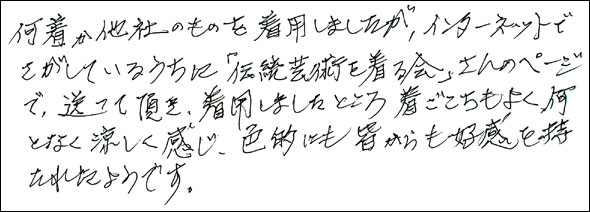 何着か他社のものを着用しましたが、インターネットで
さがしているうちに「伝統芸術を着る会」さんのページ
で、送って頂き、着用しましたところ着ごこちもよく、何
となく涼しく感じ、色的にも皆からも好感を持
たれたようです。